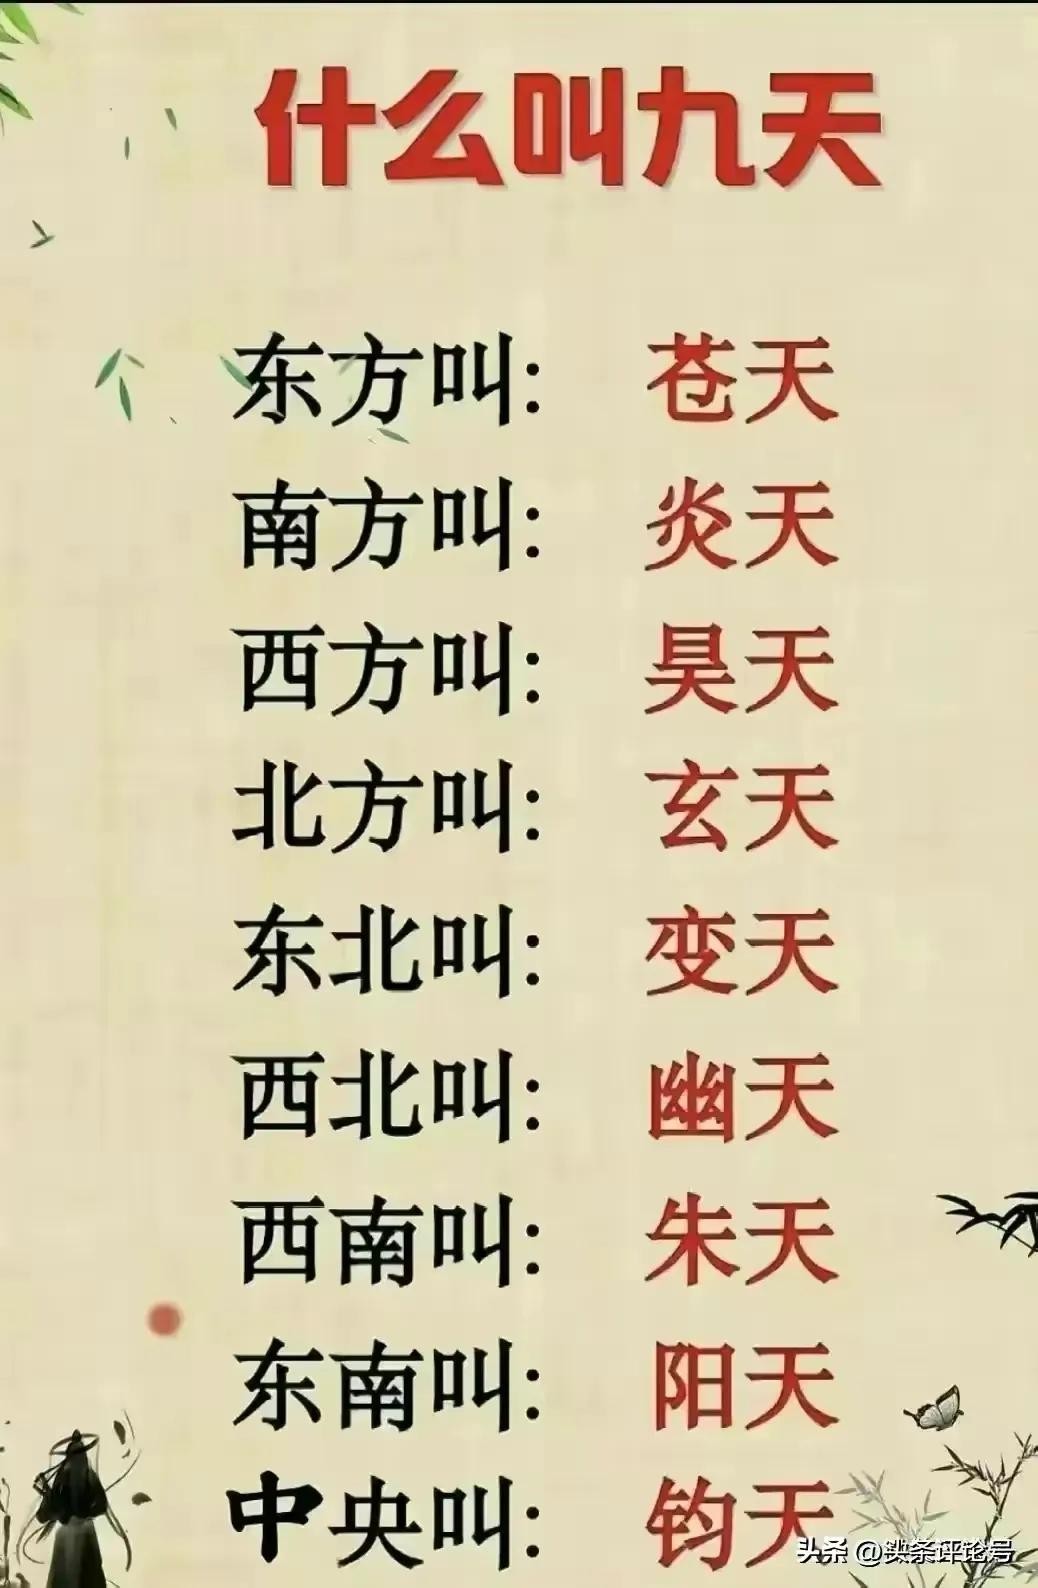 什么叫九天
东方叫: 苍天
南方叫: 炎天
西方叫: 昊天
北方叫: 玄天
东北叫: 变天
西北叫: 幽天
西南叫: 朱天
东南叫: 阳天
中央叫: 钧天
头条 @头条评论号